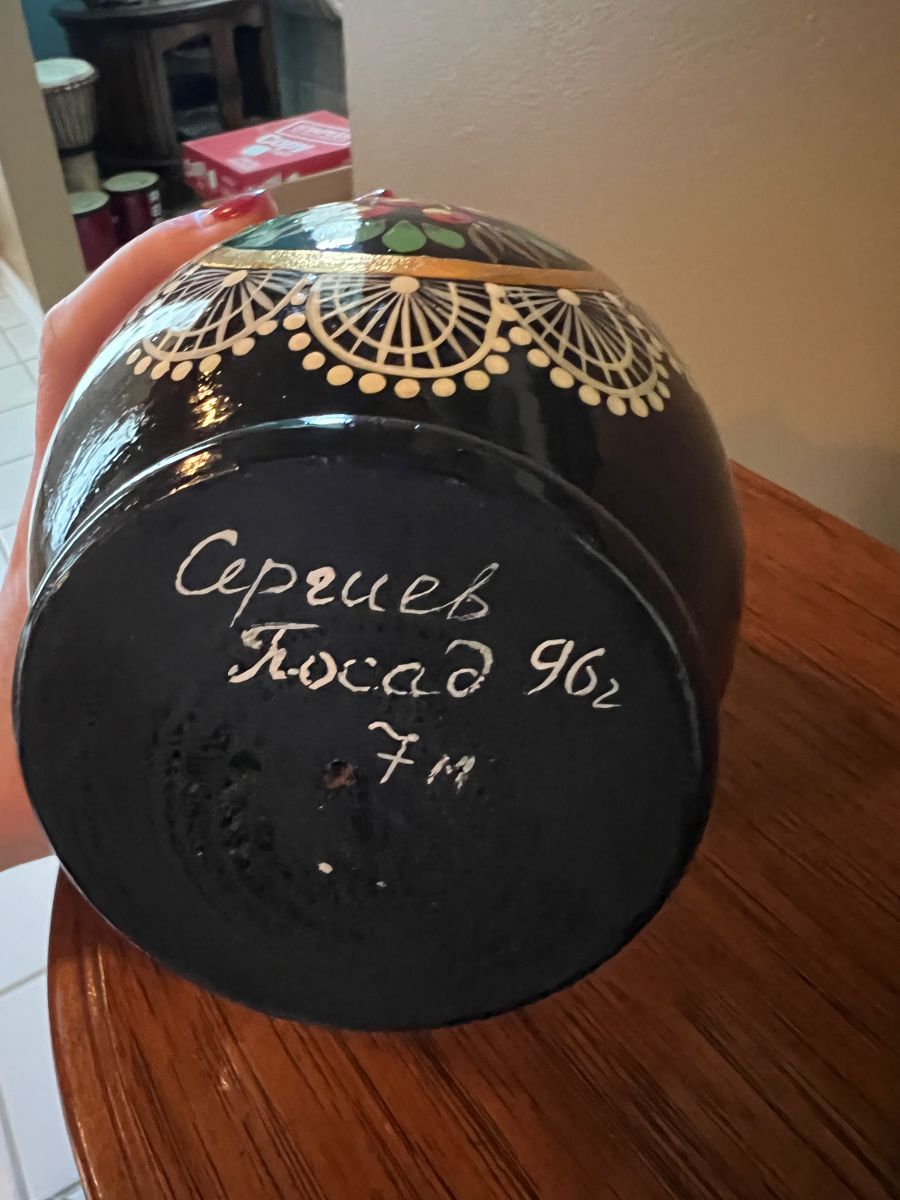 Copy
Сергиев
Посад 96г
7м